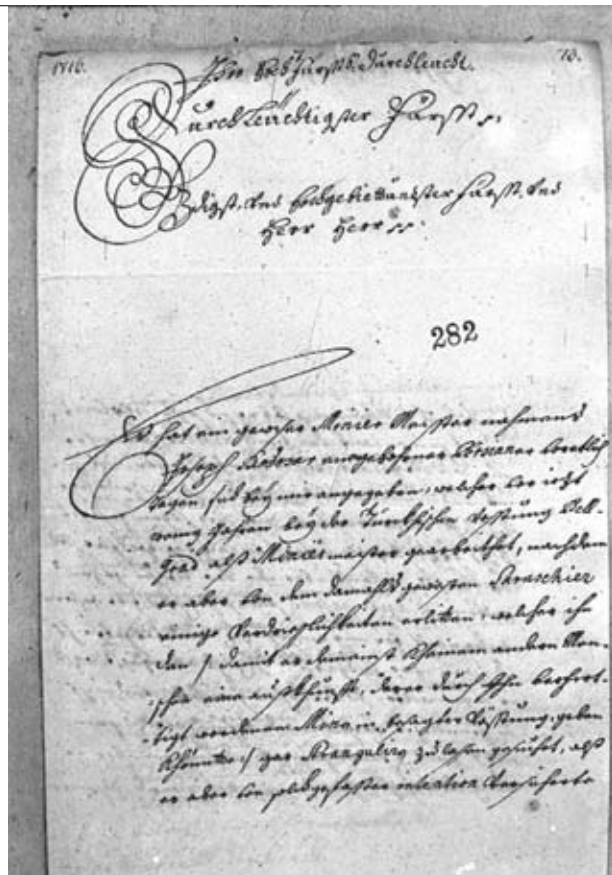 1716. Ihro Hochfürstl. Durchleucht. 73.
Durchleuchtigster Fürst
Gndigst, und Hochgebietundster Fürst, und
Herr Herr
282
Es hat ein gewiser Minier Maister nahmens
Joseph gebohrner
tagen, sich bey mir angegeben, welcher vor
wenig Jahren bey der Türckischen Vestung Bell-
grad alß Miniermeister gearbeithet, nachdem
er aber von dem damahls gewesten Seraschier
einige Verdrieslichkeiten erlitten, welcher ihn
den / damit er kheinem andern Men-
schen eine, deren durch Ihn verfert-
tigt wordenen Minen in besagter Vöstung, geben
khönnte / gar stranguliren zu lasen gesucht, alß
er aber von solch gefasster intention versicherte